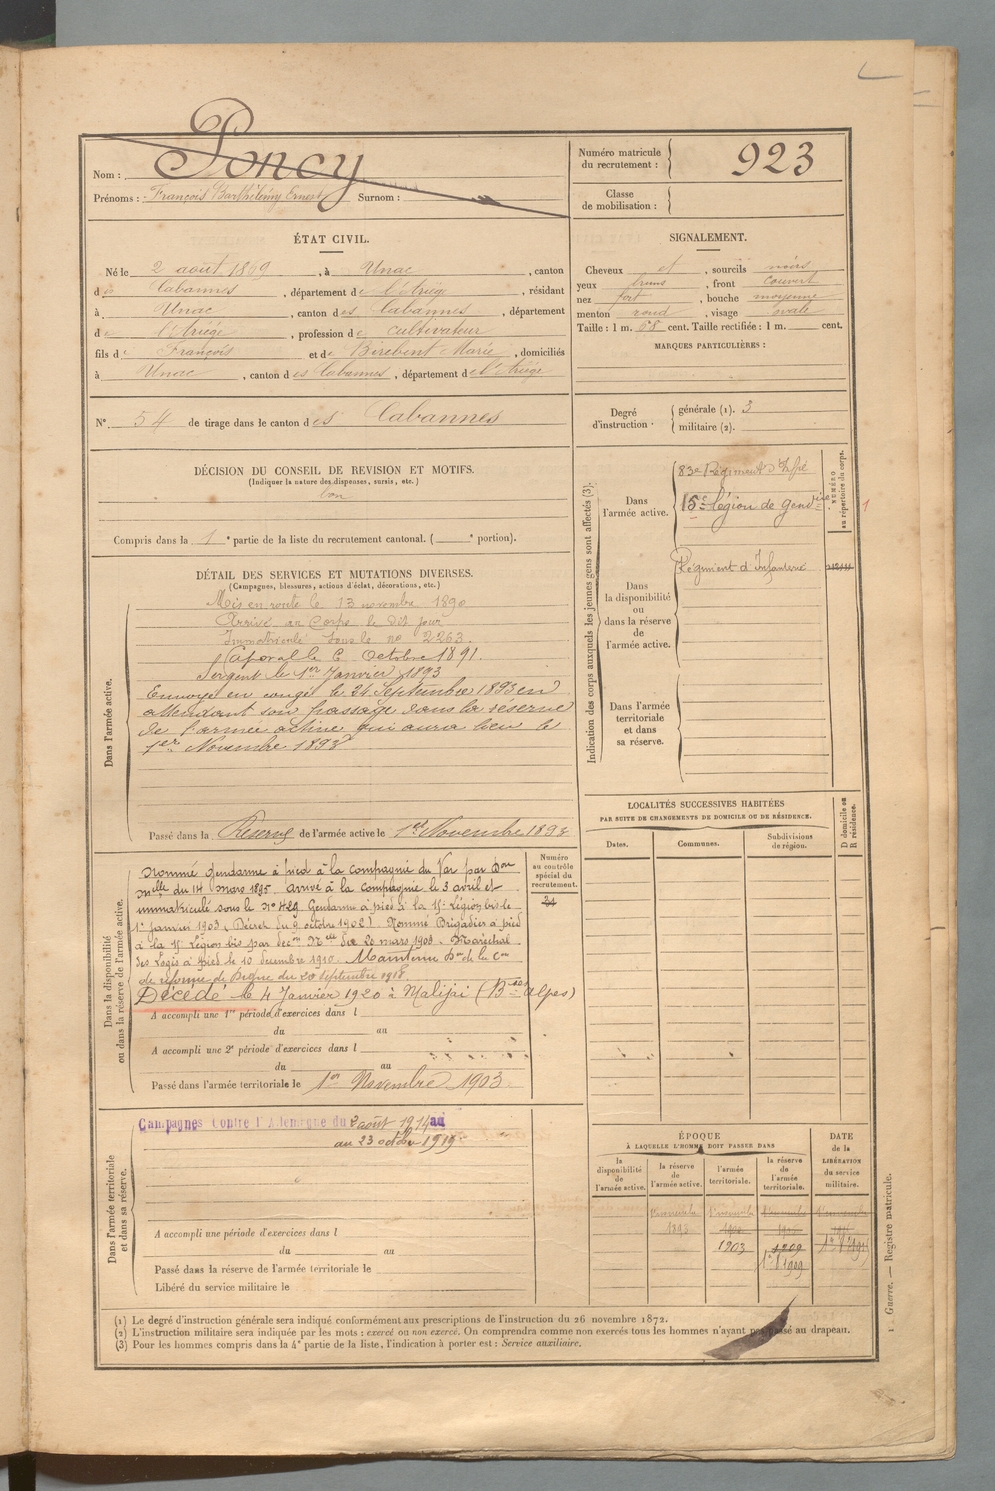 Poncy
Nom :
Prénoms : François Barthélémy Ernest Surnom :
Numéro matricule
du recrutement : 923
Classe
de mobilisation :
ÉTAT CIVIL.
Né le 2 août 1869, à Unac, canton
des Cabannes, département de l'Ariège, résidant
à Unac, canton des Cabannes, département
de l'Ariège, profession de cultivateur
fils de François et de Birebent Marie, domiciliés
à Unac, canton des Cabannes, département de l'Ariège
N° 54 de tirage dans le canton des Cabannes
SIGNALEMENT.
Cheveux et, sourcils noirs
yeux bruns, front couvert
nez fort, bouche moyenne
menton rond, visage ovale
Taille : 1 m. 68 cent. Taille rectifiée : 1 m. cent.
MARQUES PARTICULIÈRES :
Degré
d'instruction.
générale (1). 3
militaire (2).
DÉCISION DU CONSEIL DE REVISION ET MOTIFS.
(Indiquer la nature des dispenses, sursis, etc.)
bon
Compris dans la 1e partie de la liste du recrutement cantonal. ( e portion).
DÉTAIL DES SERVICES ET MUTATIONS DIVERSES.
(Campagnes, blessures, actions d'éclat, décorations, etc.)
Dans l'armée active.
Mis en route le 13 novembre 1890
Arrivé au Corps le dit jour
Immatriculé sous le no 2263.
Caporal le 6 Octobre 1891.
Sergent le 1er Janvier 1893
Envoyé en congé le 24 Septembre 1893 en
attendant son passage dans la réserve
de l'armée active qui aura lieu le
1er Novembre 1893
Passé dans la Réserve de l'armée active le 1er Novembre 1893
Indication des corps auxquels les jeunes gens sont affectés (3).
Dans
l'armée active.
83e Régiment d'Infie
15e Légion de Gendrie
NUMÉRO
au répertoire du corps.
1
Dans
la disponibilité
ou
dans la réserve
de
l'armée active.
Régiment d'Infanterie
Dans l'armée
territoriale
et dans
sa réserve.
Dans la disponibilité
ou dans la réserve de l'armée active.
Nommé Gendarme à pied à la compagnie du Var par Don
mlle du 14 mars 1895 arrivé à la compagnie le 3 avril et
immatriculé sous le No 429 Gendarme à pied à la 15e Légion bis le
1er janvier 1903 (Décret du 9 octobre 1902) Nommé Brigadier à pied
à la 15e Légion bis par décon Mlle du 20 mars 1903. Maréchal
des Logis à pied le 10 décembre 1910. Maintenu Don de la Con
de réforme de Digne du 20 septembre 1918
Décédé le 4 Janvier 1920 à Malijai (Bses Alpes)
A accompli une 1re période d'exercices dans l
du au
A accompli une 2e période d'exercices dans l
du au
Passé dans l'armée territoriale le 1er Novembre 1903
Numéro
au contrôle
spécial du
recrutement.
LOCALITÉS SUCCESSIVES HABITÉES
PAR SUITE DE CHANGEMENTS DE DOMICILE OU DE RÉSIDENCE.
Dates.
Communes.
Subdivisions
de région.
D domicile ou
R résidence.
Dans l'armée territoriale
et dans sa réserve.
Campagnes Contre l'Allemagne du 2 août 1914 au
au 23 octobre 1919
A accompli une période d'exercices dans l
du au
Passé dans la réserve de l'armée territoriale le
Libéré du service militaire le
ÉPOQUE
À LAQUELLE L'HOMME DOIT PASSER DANS
DATE
de la
LIBÉRATION
du service
militaire.
la
disponibilité
de
l'armée active.
la réserve
de
l'armée active.
l'armée
territoriale.
la réserve
de
l'armée
territoriale.
1er novembre 1893
1903
1909
1 Guerre. — Registre matricule.
(1) Le degré d'instruction générale sera indiqué conformément aux prescriptions de l'instruction du 26 novembre 1872.
(2) L'instruction militaire sera indiquée par les mots : exercé ou non exercé. On comprendra comme non exercés tous les hommes n'ayant pas passé au drapeau.
(3) Pour les hommes compris dans la 4e partie de la liste, l'indication à porter est : Service auxiliaire.